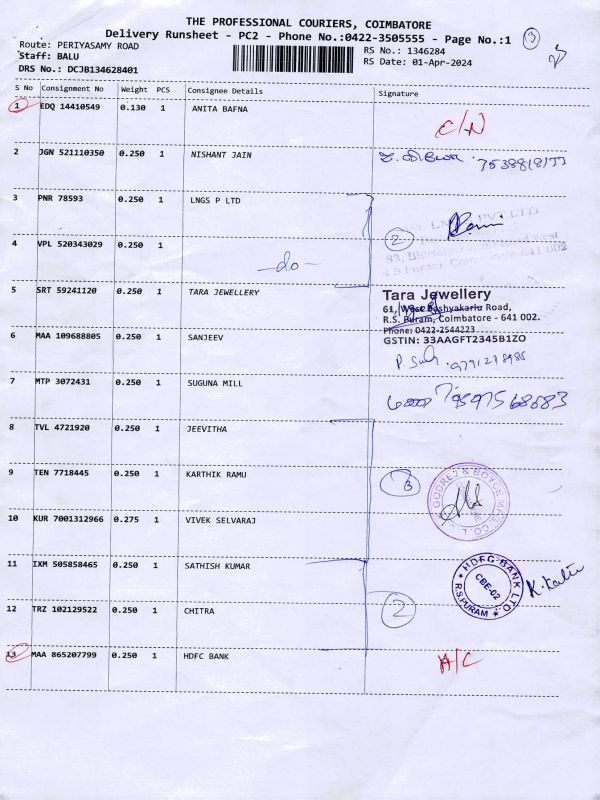 THE PROFESSIONAL COURIERS, COIMBATORE
Delivery Runsheet - PC2 - Phone No.:0422-3505555 - Page No.:1
13
Route: PERIYASAMY ROAD
RS No.: 1346284
Staff: BALU
RS Date: 01-Apr-2024
DRS No.: DCJB134628401
S No Consignment No Weight PCS Consignee Details Signature
1 EDQ 14410549 0.130 1 ANITA BAFNA
C/N
2 JGN 521110350 0.250 1 NISHANT JAIN
3 PNR 78593 0.250 1 LNGS P LTD
2
4 VPL 520343029 0.250 1
-do-
R S Puram, Coimbatore-641 002
5 SRT 59241120 0.250 1 TARA JEWELLERY
Tara Jewellery
61, West Bashyakarlu Road,
R.S. Puram, Coimbatore - 641 002.
Phone: 0422-2544223
6 MAA 109688805 0.250 1 SANJEEV
GSTIN: 33AAGFT2345B1ZO
7 MTP 3072431 0.250 1 SUGUNA MILL
8 TVL 4721920 0.250 1 JEEVITHA
9 TEN 7718445 0.250 1 KARTHIK RAMU
3
GODREJ & BOYCE MFG. CO. L
10 KUR 7001312966 0.275 1 VIVEK SELVARAJ
11 IXM 505858465 0.250 1 SATHISH KUMAR
HDFC BANK LTD
CBE-02
R.S.PURAM
12 TRZ 102129522 0.250 1 CHITRA
2
13 MAA 865207799 0.250 1 HDFC BANK
A/C